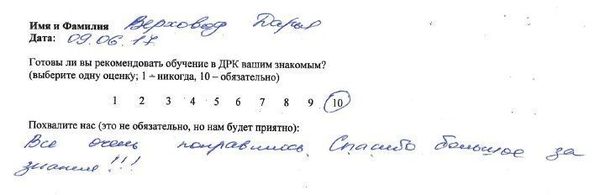 Имя и Фамилия Верховод Дарья
Дата: 09.06.17
Готовы ли вы рекомендовать обучение в ДРК вашим знакомым?
(выберите одну оценку; 1 – никогда, 10 – обязательно)
1 2 3 4 5 6 7 8 9 10
Похвалите нас (это не обязательно, но нам будет приятно):
Все очень понравилось. Спасибо большое за
знания!!!